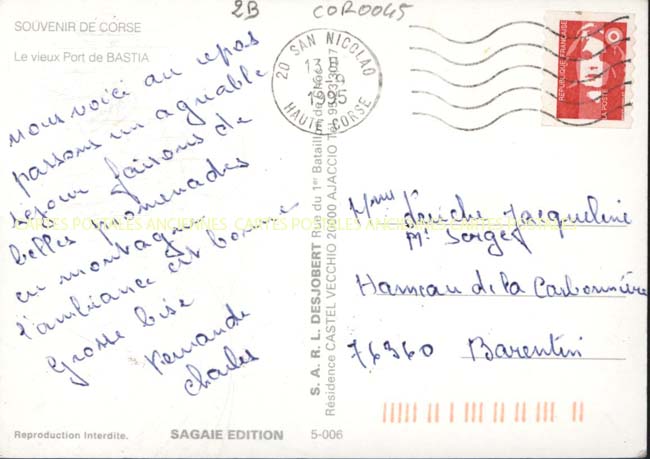 2B COR0045
SOUVENIR DE CORSE
Le vieux Port de BASTIA
nous voici au repos
passons un agréable
séjour faisons de
belles promenades
en montagne
l'ambiance est bonne
Grosse bise
Charles
20 SAN NICOLAO
13 H
1995
HAUTE CORSE
REPUBLIQUE FRANÇAISE
LA POSTE
S.A.R.L. DESJOBERT Rue du 1er Bataillon de Choc
Résidence CASTEL VECCHIO 20000 AJACCIO Tél.
Mme Jacqueline
Mr Serge
Hameau de la Carbonnière
76360 Barentin
CARTES POSTALES ANCIENNES CARTES POSTALES ANCIENNES CARTES POSTALES
Reproduction Interdite. SAGAIE EDITION 5-006